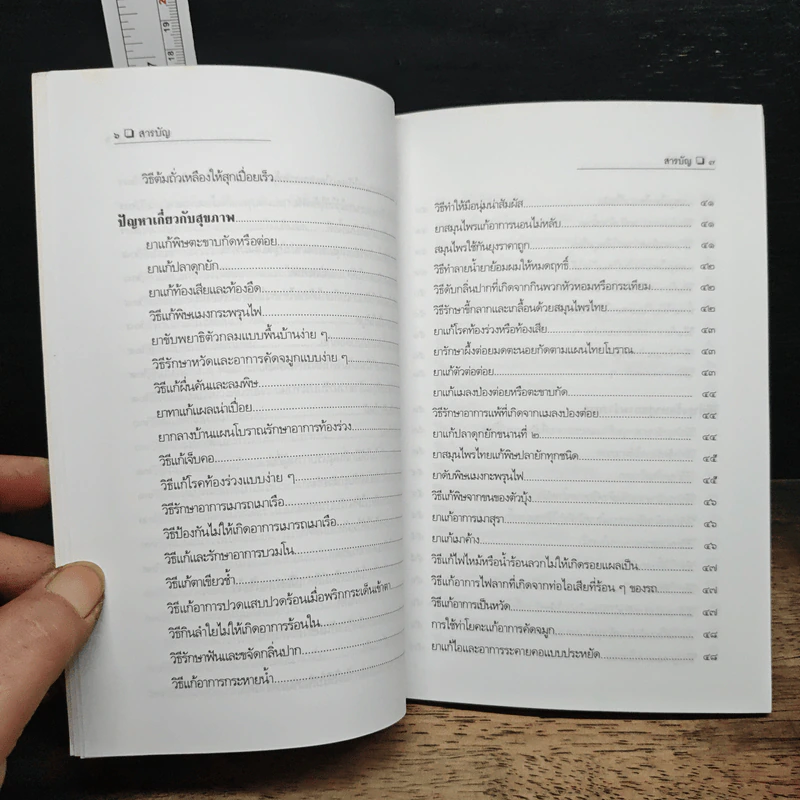 ๖ ❏ สารบัญ
วิธีต้มถั่วเหลืองให้สุกเปื่อยเร็ว
ปัญหาเกี่ยวกับสุขภาพ
ยาแก้พิษตะขาบกัดหรือต่อย
ยาแก้ปลาดุกยัก
ยาแก้ท้องเสียและท้องอืด
วิธีแก้พิษแมงกะพรุนไฟ
ยาขับพยาธิตัวกลมแบบพื้นบ้านง่าย ๆ
วิธีรักษาหวัดและอาการคัดจมูกแบบง่าย ๆ
วิธีแก้ผื่นคันและลมพิษ
ยาทาแก้แผลเน่าเปื่อย
ยากลางบ้านแผนโบราณรักษาอาการท้องร่วง
วิธีแก้เจ็บคอ
วิธีแก้โรคท้องร่วงแบบง่าย ๆ
วิธีรักษาอาการเมารถเมาเรือ
วิธีป้องกันไม่ให้เกิดอาการเมารถเมาเรือ
วิธีแก้และรักษาอาการบวมโน
วิธีแก้ตาเขียวช้ำ
วิธีแก้อาการปวดแสบปวดร้อนเมื่อพริกกระเด็นเข้าตา
วิธีกินลำไยไม่ให้เกิดอาการร้อนใน
วิธีรักษาฟันและขจัดกลิ่นปาก
วิธีแก้อาการกระหายน้ำ
สารบัญ ❏ ๗
วิธีทำให้มือนุ่มน่าสัมผัส ๔๑
ยาสมุนไพรแก้อาการนอนไม่หลับ ๔๑
สมุนไพรใช้กันยุงราคาถูก ๔๑
วิธีทำลายน้ำยาย้อมผมให้หมดฤทธิ์ ๔๒
วิธีดับกลิ่นปากที่เกิดจากกินพวกหัวหอมหรือกระเทียม ๔๒
วิธีรักษาขี้กลากและเกลื้อนด้วยสมุนไพรไทย ๔๒
ยาแก้โรคท้องร่วงหรือท้องเสีย ๔๓
ยารักษาผึ้งต่อยมดตะนอยกัดตามแผนไทยโบราณ ๔๓
ยาแก้ตัวต่อต่อย ๔๓
ยาแก้แมลงป่องต่อยหรือตะขาบกัด ๔๔
วิธีรักษาอาการแพ้ที่เกิดจากแมลงป่องต่อย ๔๔
ยาแก้ปลาดุกยักขนานที่ ๒ ๔๔
ยาสมุนไพรไทยแก้พิษปลายักทุกชนิด ๔๕
ยาดับพิษแมงกะพรุนไฟ ๔๕
วิธีแก้พิษจากขนของตัวบุ้ง ๔๖
ยาแก้อาการเมาสุรา ๔๖
ยาแก้เมาค้าง ๔๖
วิธีแก้ไฟไหม้หรือน้ำร้อนลวกไม่ให้เกิดรอยแผลเป็น ๔๗
วิธีแก้อาการไฟลากที่เกิดจากท่อไอเสียที่ร้อน ๆ ของรถ ๔๗
วิธีแก้อาการเป็นหวัด ๔๗
การใช้ท่าโยคะแก้อาการคัดจมูก ๔๘
ยาแก้ไอและอาการระคายคอแบบประหยัด ๔๘